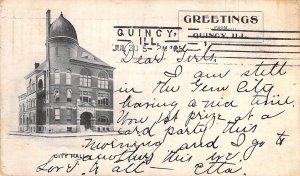 GREETINGS
FROM QUINCY, ILL.
QUINCY,
ILL.
JUL 30 5-PM
Dear Girls.
I am still
in the Gem City
having a nice time.
Won 1st prize at a
card party this
morning and I go to
another this eve
Love to all — Etta.
CITY HALL